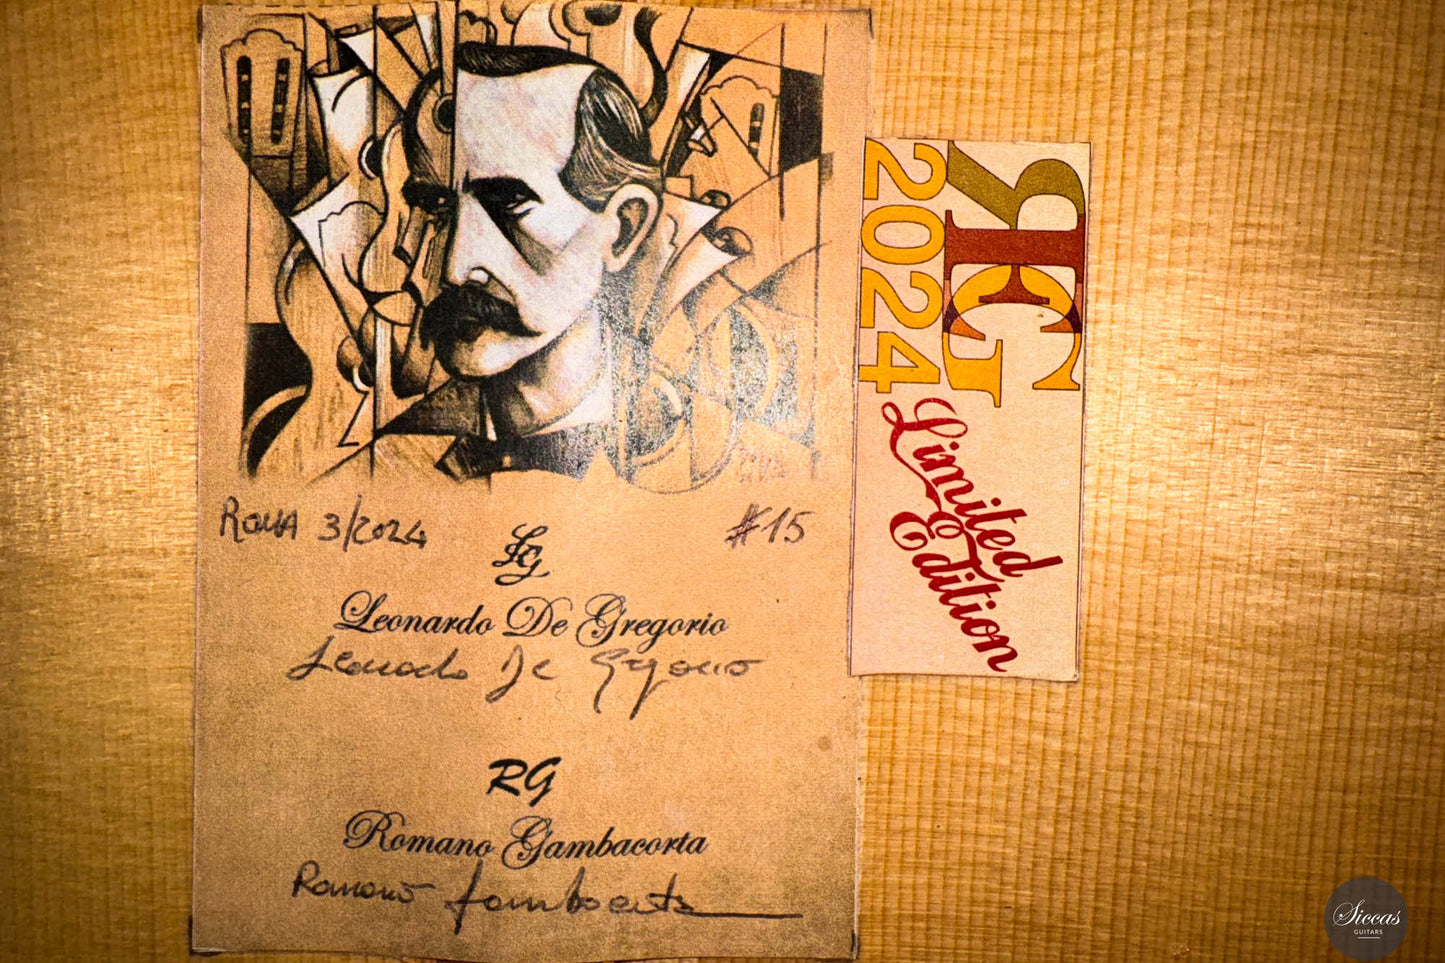 ROMA 3/2024
#15
LG
Leonardo De Gregorio
Leonardo De Gregorio
RG
Romano Gambacorta
Romano Gambacorta
2024
RG
Limited
Edition
Siccas
GUITARS